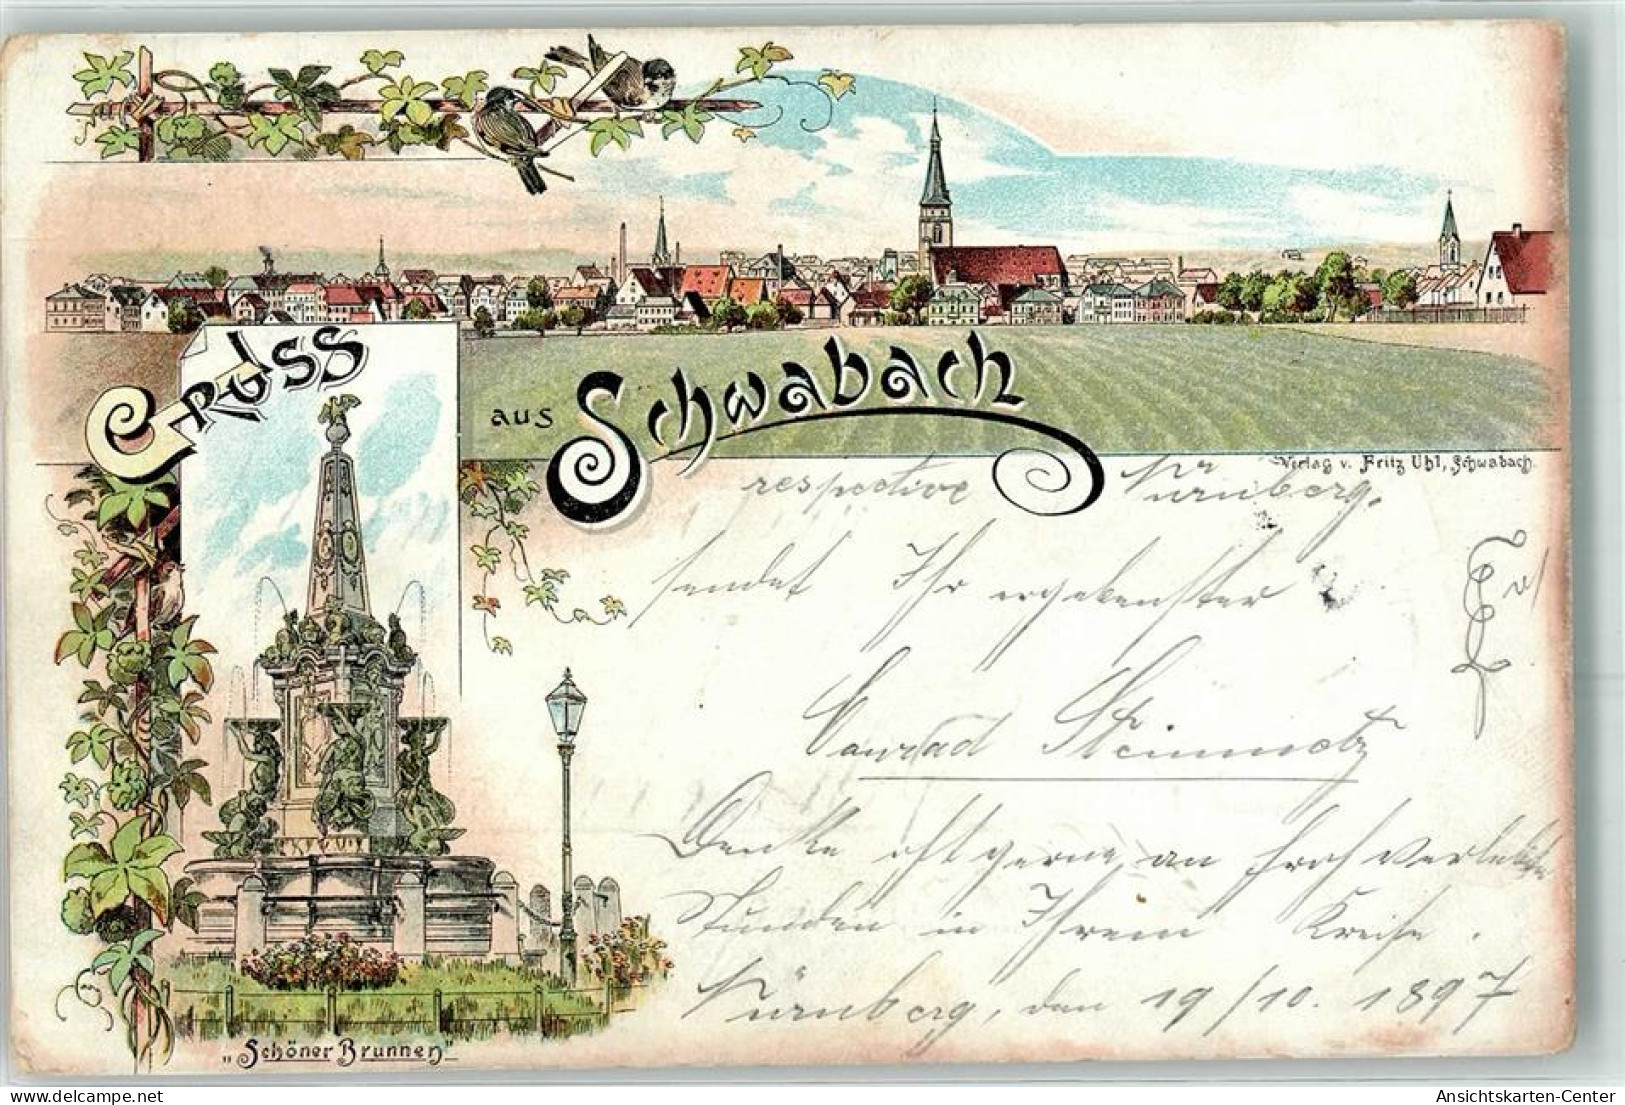 Gruss
aus Schwabach
Verlag v. Fritz Uhl, Schwabach.
respective Nürnberg.
sendet Ihr ergebenster
Conrad Steinmetz
Denke oft gerne an froh verlebte
Stunden in Ihrem Kreise.
Nürnberg, den 19/10. 1897
„Schöner Brunnen"
Ansichtskarten-Center